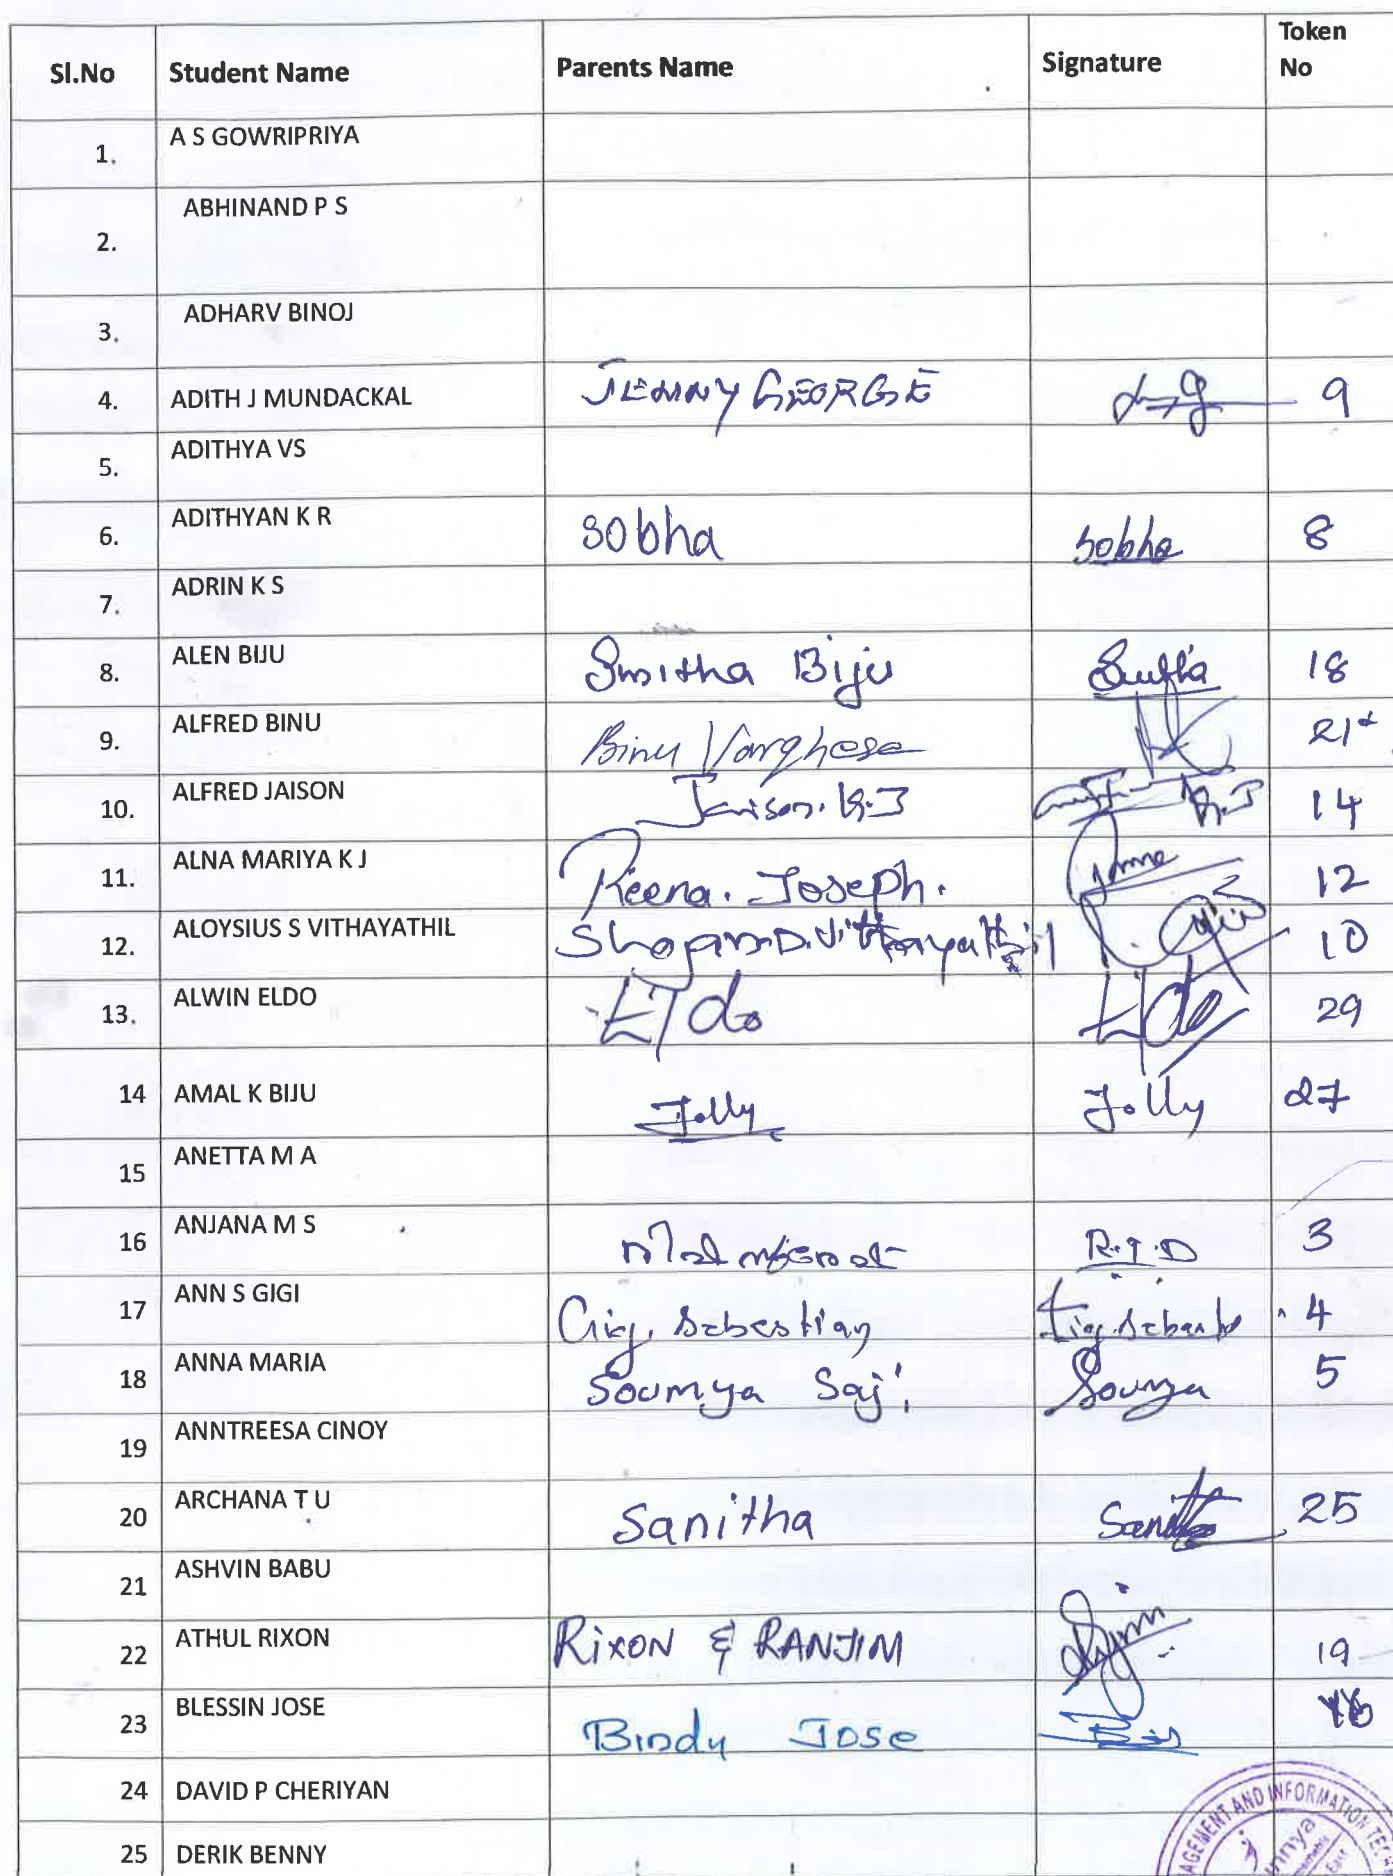 Sl.No Student Name Parents Name Signature Token No
1. A S GOWRIPRIYA
2. ABHINAND P S
3. ADHARV BINOJ
4. ADITH J MUNDACKAL JENNY GEORGE 9
5. ADITHYA VS
6. ADITHYAN K R Sobha Sobha 8
7. ADRIN K S
8. ALEN BIJU Smitha Biju 18
9. ALFRED BINU Binu Varghese 21
10. ALFRED JAISON Jaison. K.J K.J 14
11. ALNA MARIYA K J Reena. Joseph. 12
12. ALOYSIUS S VITHAYATHIL 10
13. ALWIN ELDO Eldo Eldo 29
14 AMAL K BIJU Jolly Jolly 27
15 ANETTA M A
16 ANJANA M S 3
17 ANN S GIGI Gigi. Sebestian 4
18 ANNA MARIA Soumya Saji Soumya 5
19 ANNTREESA CINOY
20 ARCHANA T U Sanitha 25
21 ASHVIN BABU
22 ATHUL RIXON RIXON & RANJIM 19
23 BLESSIN JOSE Bindu Jose
24 DAVID P CHERIYAN
25 DERIK BENNY
AND INFORMATION